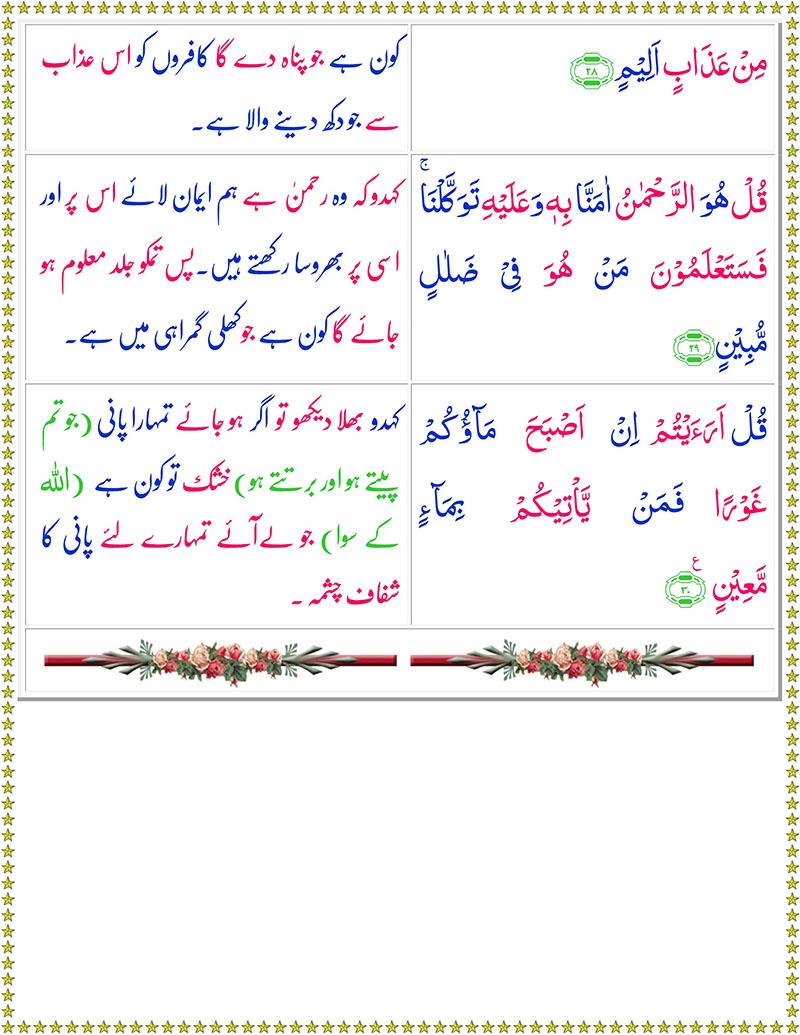 مِنْ عَذَابٍ اَلِيْمٍ ﴿۲۸﴾
کون ہے جو پناہ دے گا کافروں کو اس عذاب
سے جو دکھ دینے والا ہے۔
قُلْ هُوَ الرَّحْمٰنُ اٰمَنَّا بِهٖ وَعَلَيْهِ تَوَكَّلْنَا ۚ
فَسَتَعْلَمُوْنَ مَنْ هُوَ فِيْ ضَلٰلٍ
مُّبِيْنٍ ﴿۲۹﴾
کہدو کہ وہ رحمنٰ ہے ہم ایمان لائے اس پر اور
اسی پر بھروسا رکھتے ہیں۔ پس تمکو جلد معلوم ہو
جائے گا کون ہے جو کھلی گمراہی میں ہے۔
قُلْ اَرَءَيْتُمْ اِنْ اَصْبَحَ مَآؤُكُمْ
غَوْرًا فَمَنْ يَّاْتِيْكُمْ بِمَآءٍ
مَّعِيْنٍ ﴿۳۰﴾ ع
کہدو بھلا دیکھو تو اگر ہو جائے تمہارا پانی (جو تم
پیتے ہو اور برتتے ہو) خشک تو کون ہے (اللہ
کے سوا) جو لے آئے تمہارے لئے پانی کا
شفاف چشمہ ۔